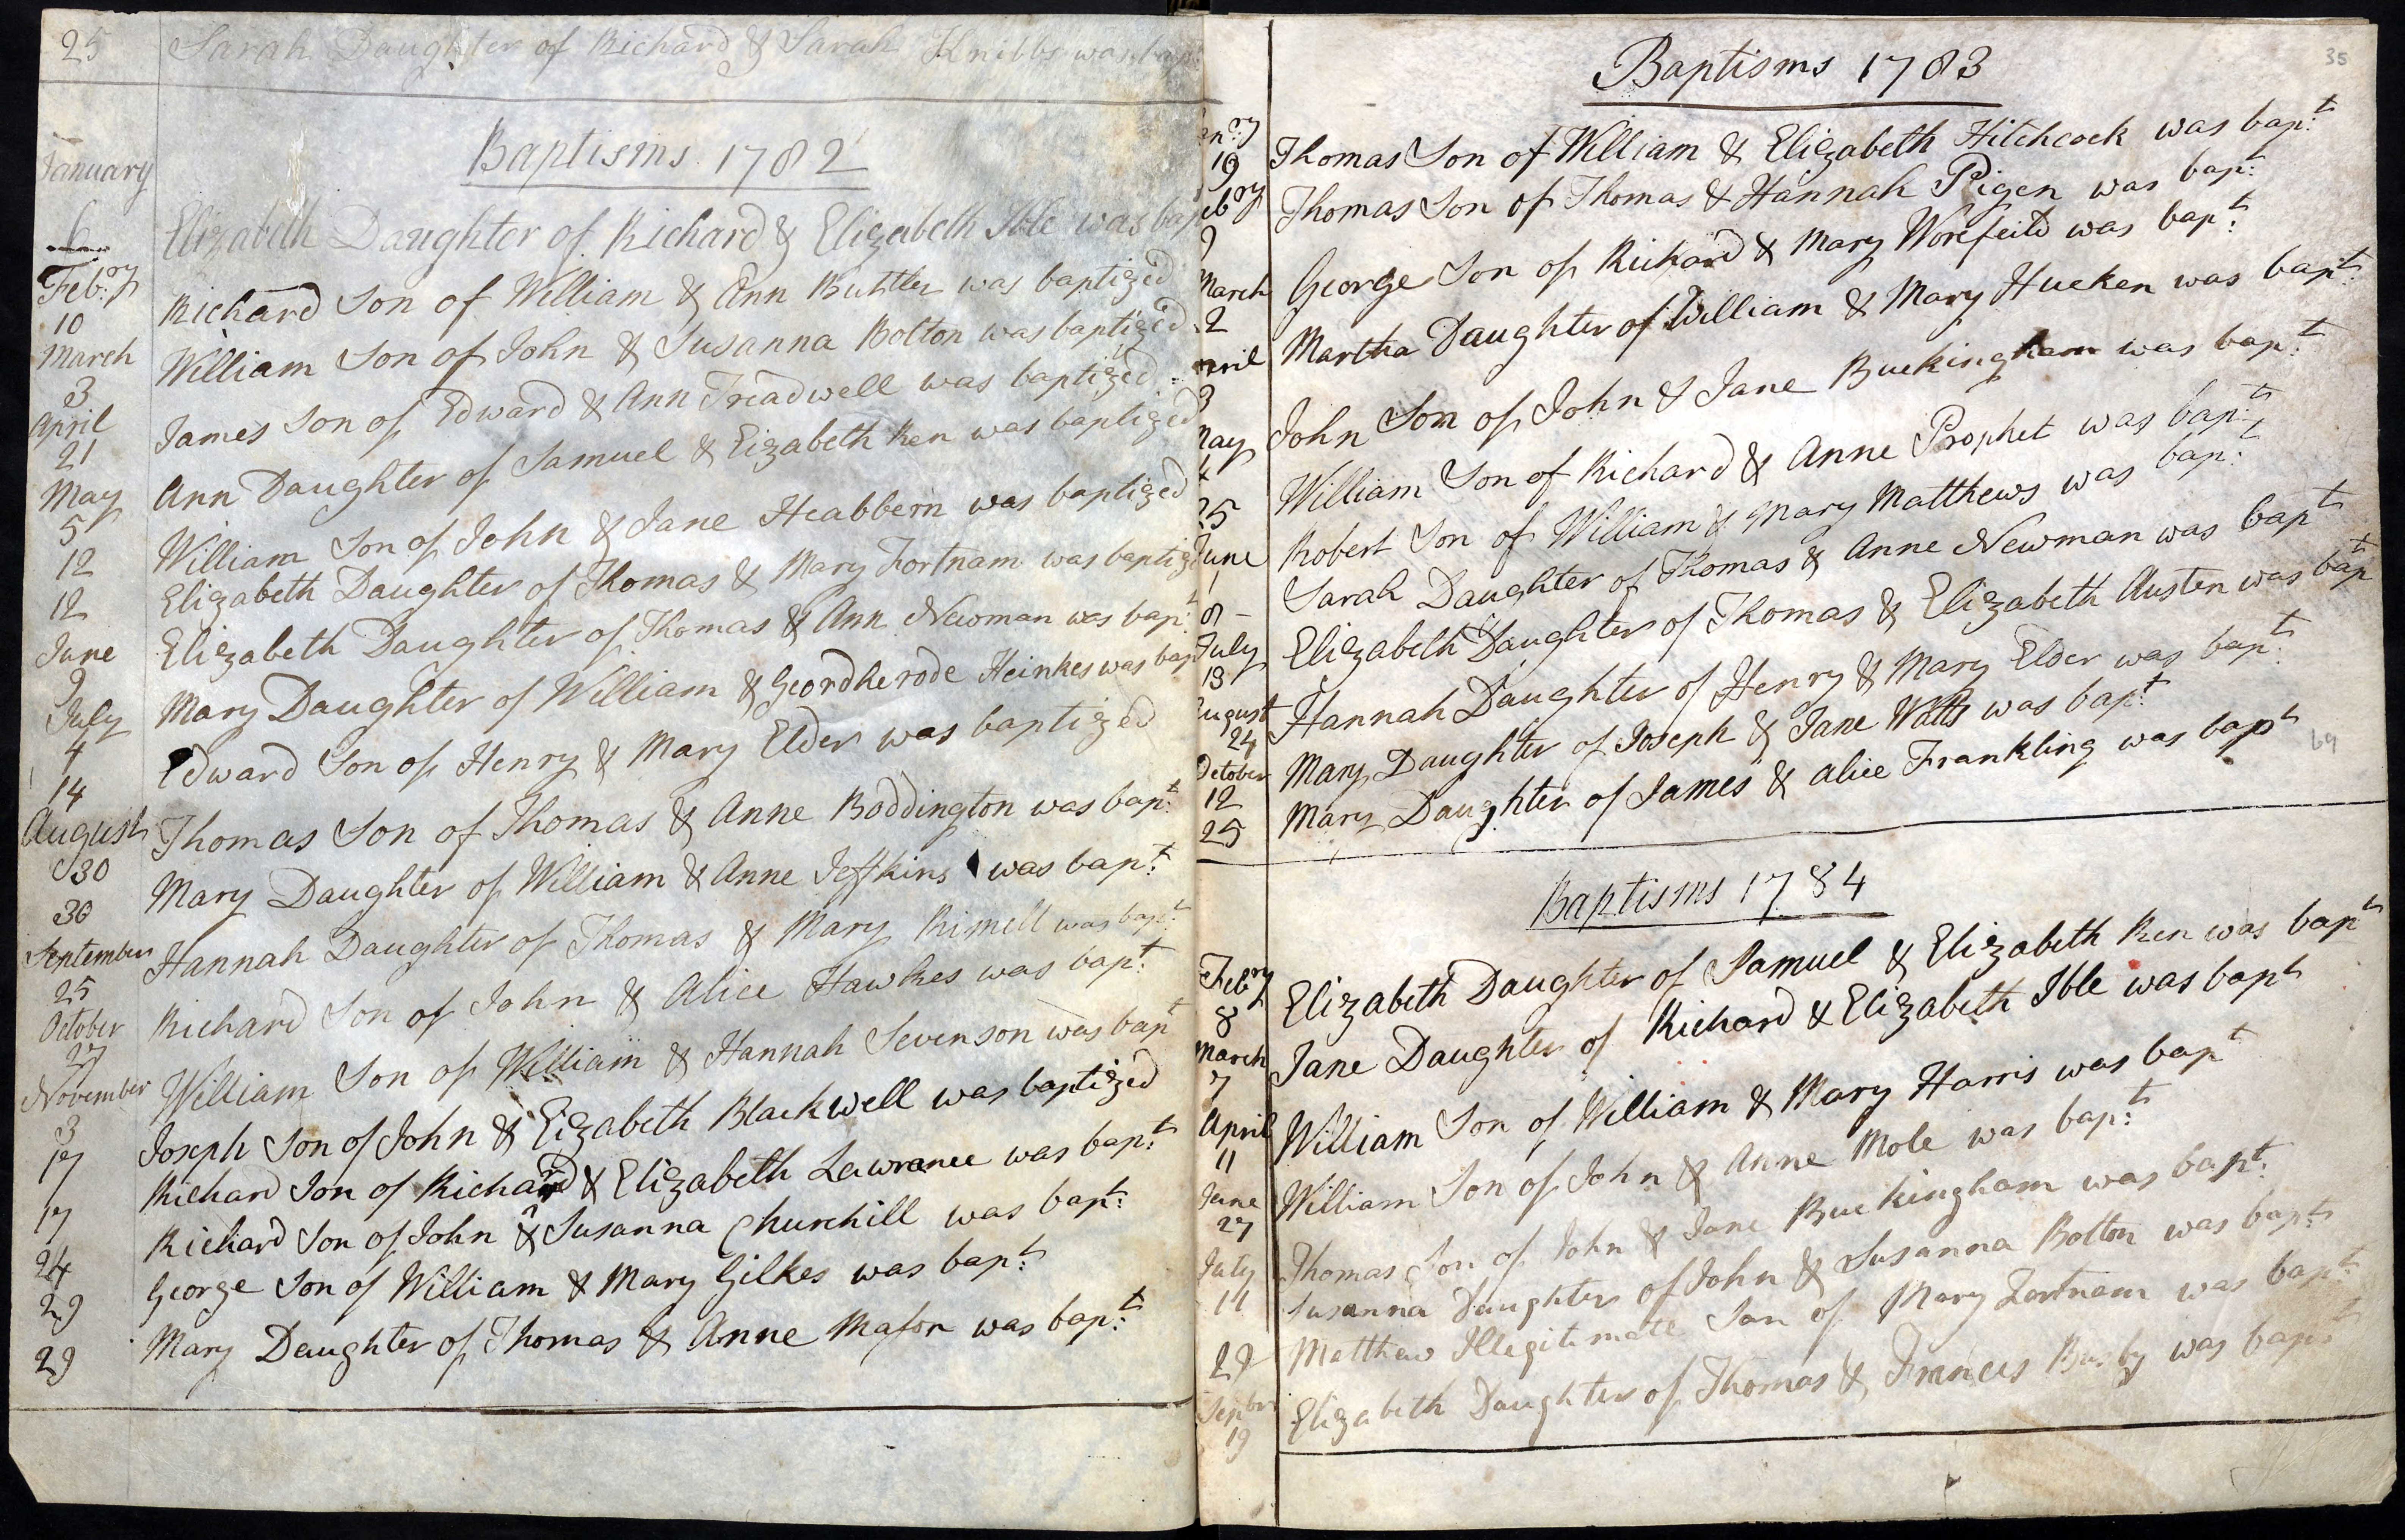 25 Sarah Daughter of Richard & Sarah Knibbs was bapt
Baptisms 1782
January
6 Elizabeth Daughter of Richard & Elizabeth Ible was bap
Feb:ry
10 Richard Son of William & Ann Buttler was baptized
March
3 William Son of John & Susanna Bolton was baptized
April
21 James Son of Edward & Ann Treadwell was baptized
May
5 Ann Daughter of Samuel & Eizabeth Ren was baptized
12 William Son of John & Jane Heabbern was baptized
12 Elizabeth Daughter of Thomas & Mary Fortnam was baptiz
June
9 Elizabeth Daughter of Thomas & Ann Newman was bap:t
July
4 Mary Daughter of William & Geordherode Heinkes was bap
14 Edward Son of Henry & Mary Elder was baptized
August
30 Thomas Son of Thomas & Anne Boddington was bap:t
30 Mary Daughter of William & Anne Jeffkins was bap:t
September
25 Hannah Daughter of Thomas & Mary Rimell was bap:t
October
27 Richard Son of John & Alice Hawkes was bap:t
November
3 William Son of William & Hannah Sevenson was bapt
17 Joseph Son of John & Eizabeth Blackwell was baptized
17 Richard Son of Richard & Elizabeth Lawrance was bap:t
24 Richard Son of John & Susanna Churchill was bap:t
29 George Son of William & Mary Gilkes was bap:t
29 Mary Daughter of Thomas & Anne Mason was bap:t
35
Baptisms 1783
an:ry
19 Thomas Son of William & Elizabeth Hitchcock was bap:t
ebry
9 Thomas Son of Thomas & Hannah Pigen was bap:t
March
2 George Son of Richard & Mary Worefeild was bap:t
Martha Daughter of William & Mary Hucken was bap:t
April
3 John Son of John & Jane Buckingham was bap:t
May
4 William Son of Richard & Anne Prophet was bap:t
25 Robert Son of William & Mary Matthews was bap:t
June
1 Sarah Daughter of Thomas & Anne Newman was bapt
8 - Elizabeth Daughter of Thomas & Elizabeth Austen was bapt
July
13 Hannah Daughter of Henry & Mary Elder was bap:t
August
24
October
12 Mary Daughter of Joseph & Jane Watts was bap:t
25 Mary Daughter of James & Alice Frankling was bapt
69
Baptisms 1784
Febry
8 Elizabeth Daughter of Samuel & Elizabeth Ren was bapt
March
7 Jane Daughter of Richard & Elizabeth Ible was bapt
April
11 William Son of William & Mary Harris was bapt
June
27 William Son of John & Anne Mole was bap:t
Thomas Son of John & Jane Buckingham was bapt:
July
11 Susanna Daughter of John & Susanna Bolton was bap:t
29 Matthew Illegitimate Son of Mary Fortnam was bap:t
Sepbr
19 Elizabeth Daughter of Thomas & Frances Busby was bap:t